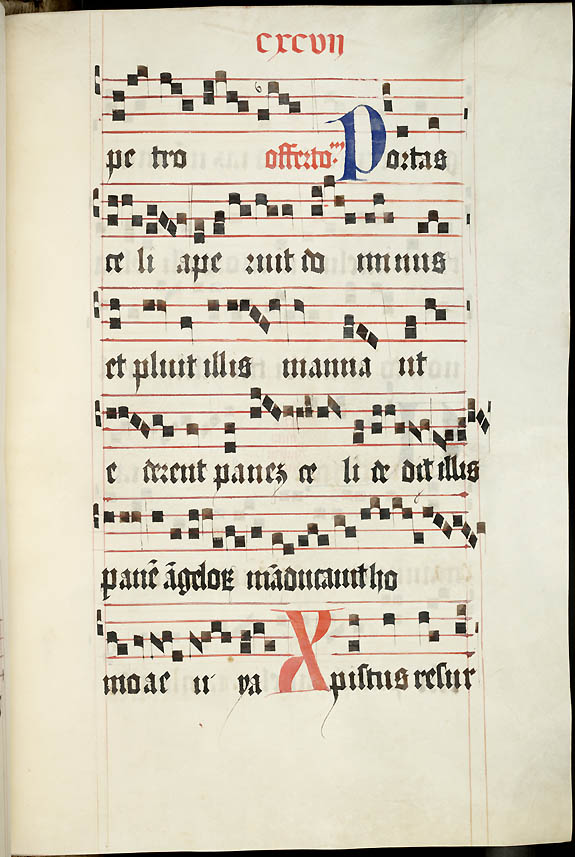 cxcvii
pe tro offerto Portas
ce li ape ruit do minus
et pluit illis manna ut
e derent panez ce li de dit illis
panē āgeloꝝ māducauit ho
mo ae u ya Xpistus resur